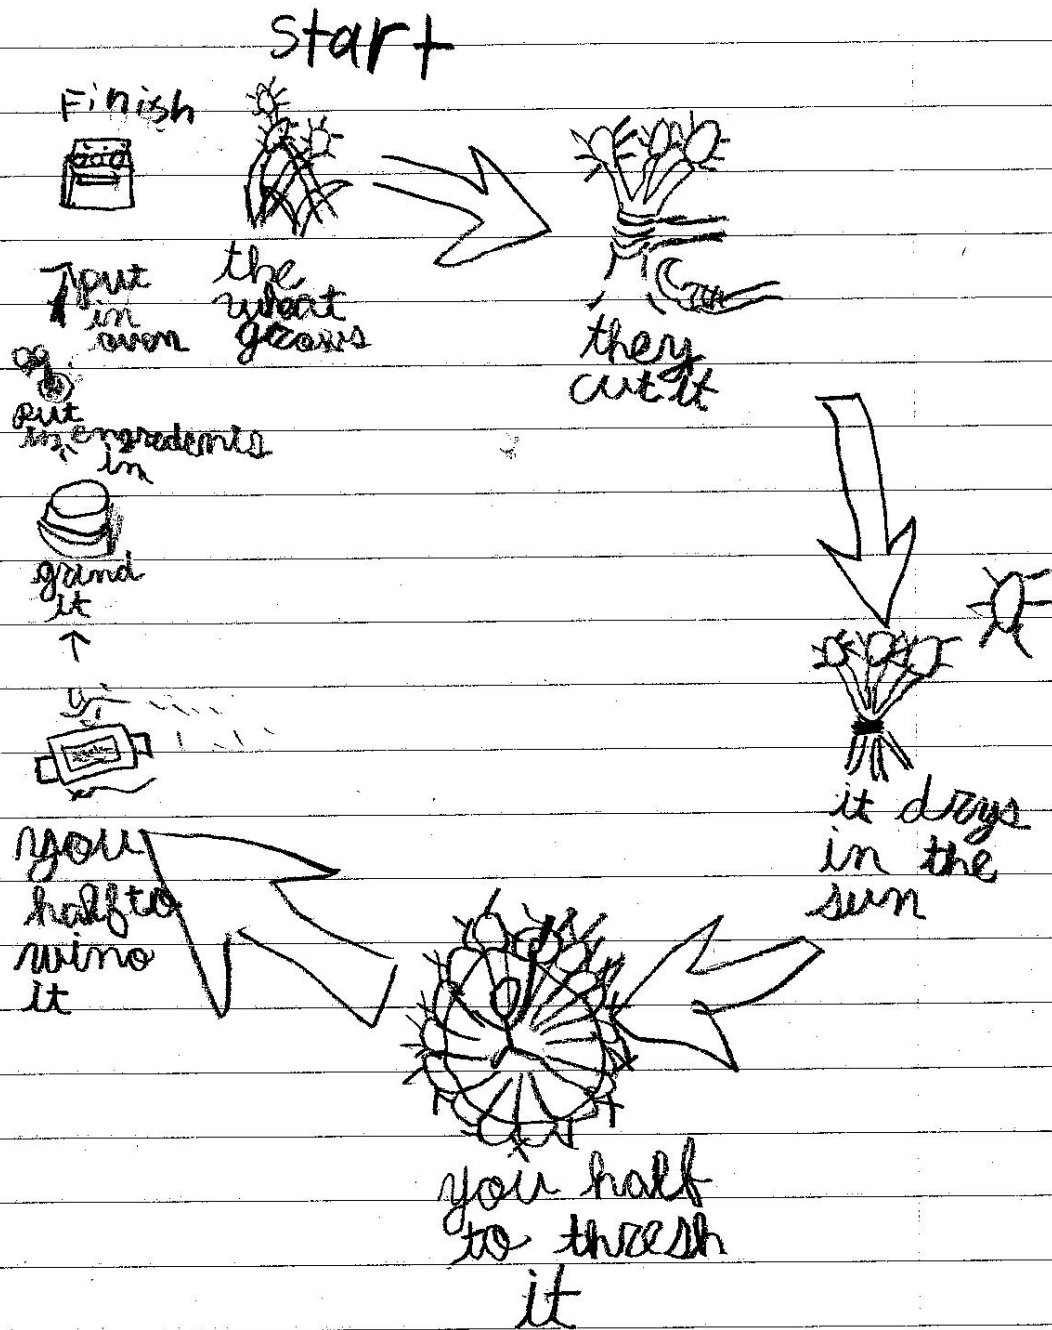 Start
the
wheat
grows
they
cut it
it drys
in the
sun
you half
to thresh
it
you
half to
wino
it
grind
it
put
engredenis
in
put
in
oven
Finish